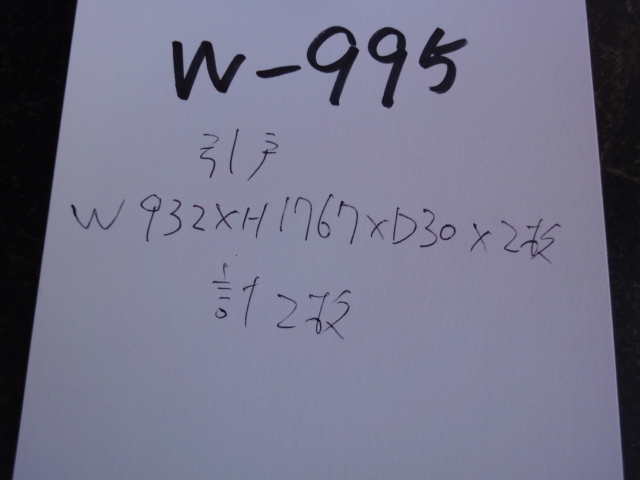 W-995
引戸
W932×H1767×D30×2枚
計2枚